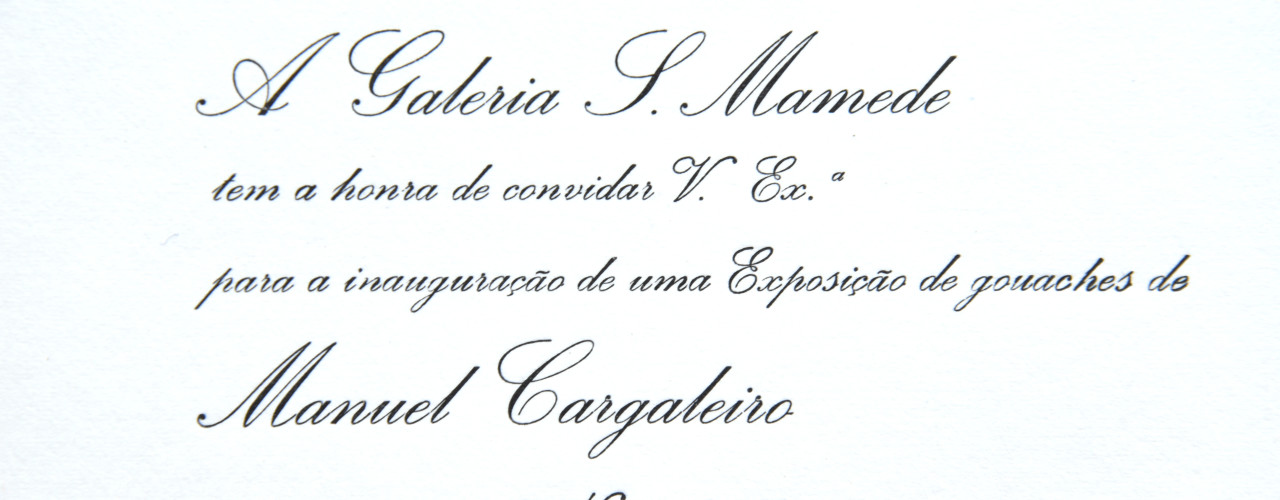 A Galeria S. Mamede
tem a honra de convidar V. Ex.ª
para a inauguração de uma Exposição de gouaches de
Manuel Cargaleiro